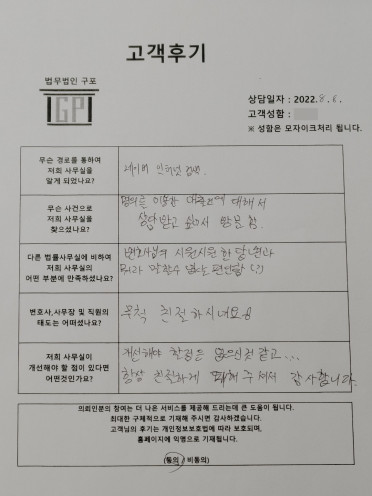 고객후기
법무법인 구포
IGPI
상담일자 : 2022. 8. 6.
고객성함 :
※ 성함은 모자이크처리 됩니다.
무슨 경로를 통하여
저희 사무실을
알게 되었나요?
네이버 인터넷 검색
무슨 사건으로
저희 사무실을
찾으셨나요?
명의를 이용한 대출건에 대해서
상담받고 싶어서 방문함.
다른 법률사무실에 비하여
저희 사무실의
어떤 부분에 만족하셨나요?
변호사님의 시원시원한 답변과
뭐라 말할수 없는 편안함
변호사,사무장 및 직원의
태도는 어떠셨나요?
무척 친절하시네요
저희 사무실이
개선해야 할 점이 있다면
어떤것인가요?
개선해야 할점은 없으신것 같고...
항상 친절하게 대해 주셔서 감사합니다.
의뢰인분의 참여는 더 나은 서비스를 제공해 드리는데 큰 도움이 됩니다.
최대한 구체적으로 기재해 주시면 감사하겠습니다.
고객님의 후기는 개인정보보호법에 따라 보호되며,
홈페이지에 익명으로 기재됩니다.
(동의 / 비동의)